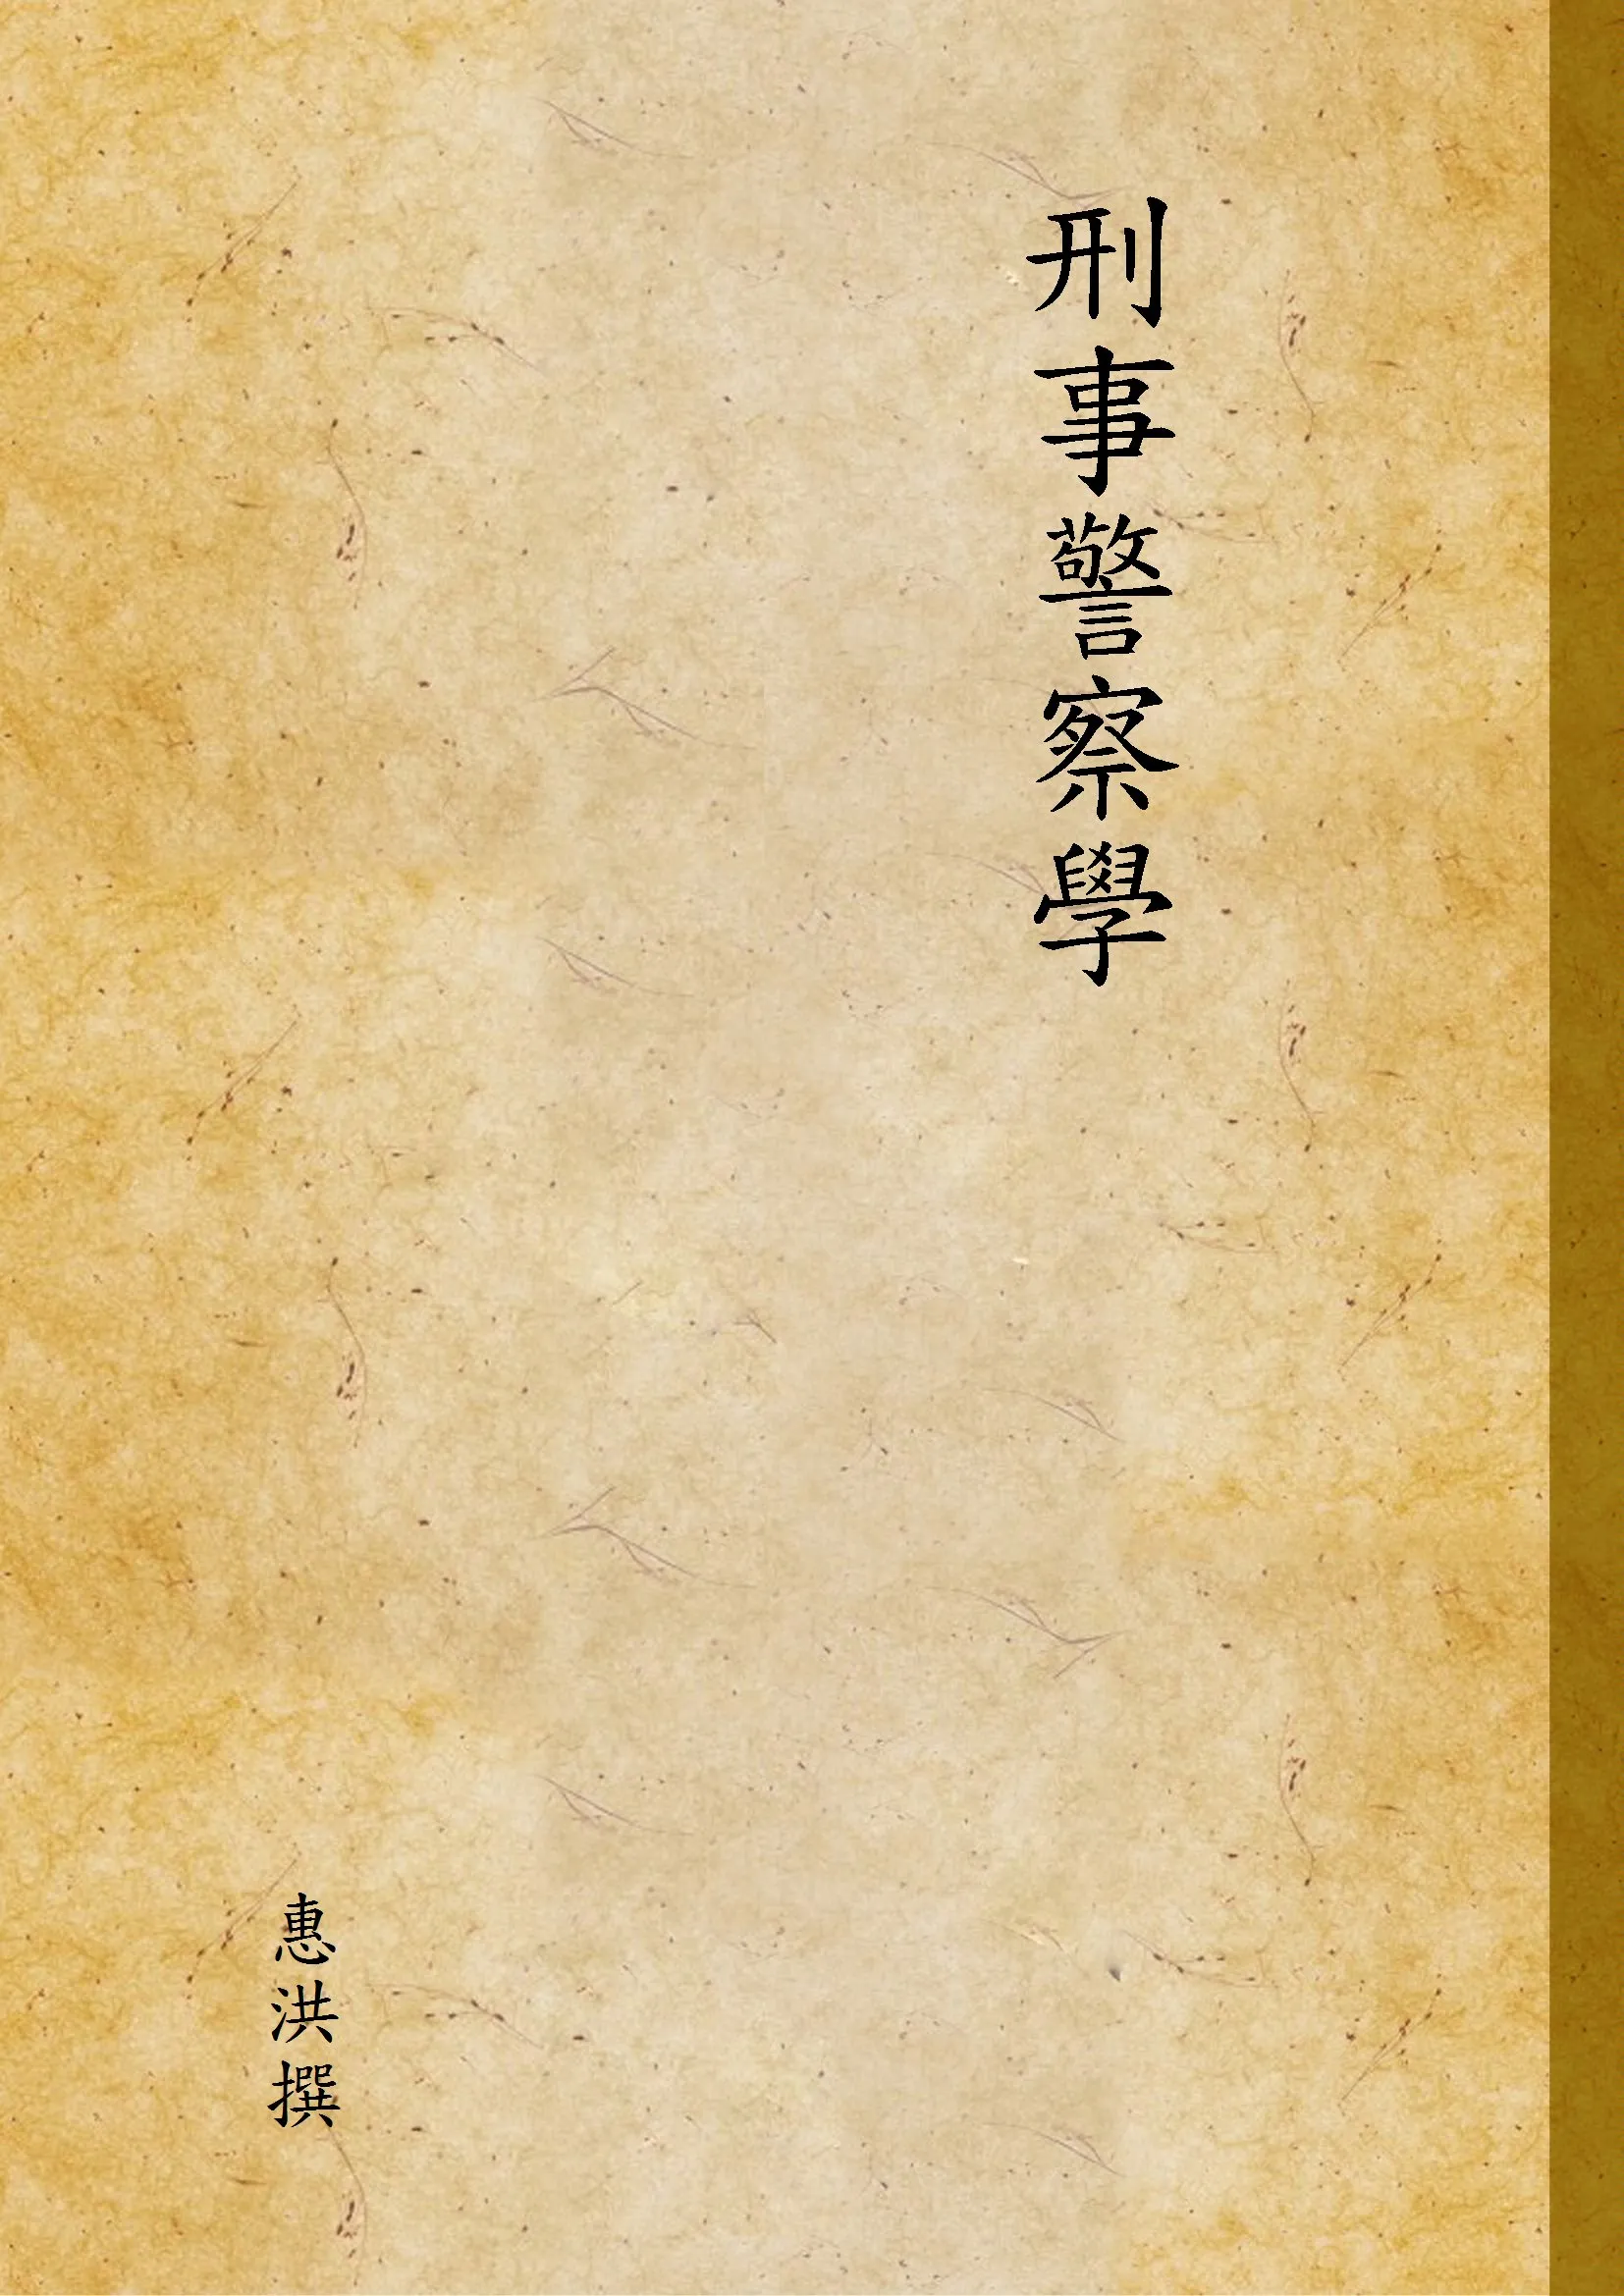 刑事警察學
惠洪撰